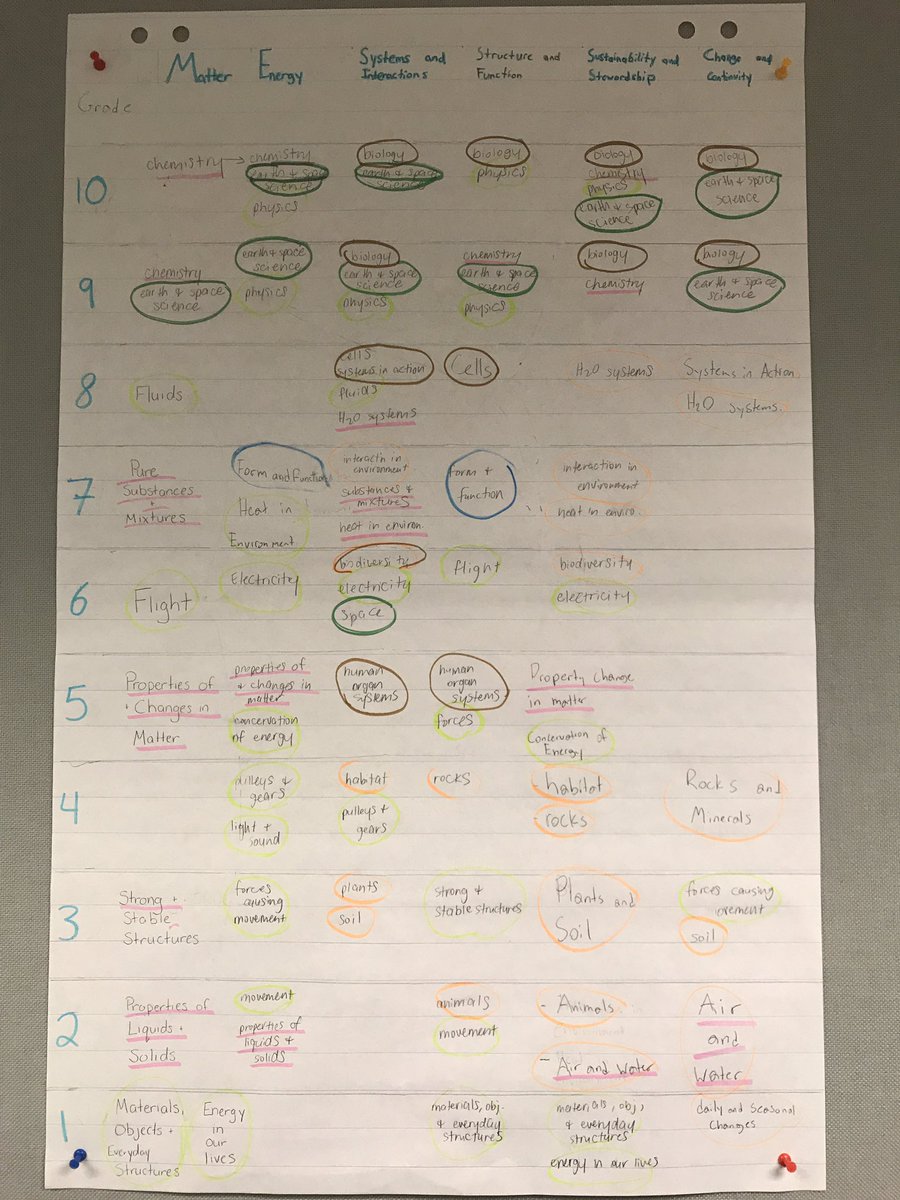 Matter Energy Systems and Interactions Structure and Function Sustainability and Stewardship Change and Continuity
Grade
10
chemistry → chemistry
earth & space science
physics
biology
earth & space science
biology
physics
biology
chemistry
physics
earth & space science
biology
earth & space science
9
chemistry
earth & space science
earth & space science
physics
biology
earth & space science
physics
chemistry
earth & space science
physics
biology
chemistry
biology
earth & space science
8
Fluids
Cells
systems in action
fluids
H2O systems
Cells
H2O systems
Systems in Action
H2O systems.
7
Pure
Substances
+
Mixtures
Form and Function
Heat in
Environment
interactn in
environment
substances &
mixtures
heat in environ.
form &
function
interaction in
environment
heat in enviro.
6
Flight
Electricity
biodiversity
electricity
space
flight
biodiversity
electricity
5
Properties of
+ Changes in
Matter
properties of
& changes in
matter
concervation
of energy
human
organ
systems
human
organ
systems
forces
Property change
in matter
Conservation of
Energy
4
pulleys &
gears
light +
sound
habitat
pulleys +
gears
rocks
- habitat
- rocks
Rocks and
Minerals
3
Strong +
Stable
Structures
forces
causing
movement
plants
soil
strong &
stable structures
Plants and
Soil
forces causing
movement
soil
2
Properties of
Liquids +
Solids
movement
properties of
liquids &
solids
animals
movement
- Animals
- Air and Water
Air
and
Water
1
Materials,
Objects +
Everyday
Structures
Energy
in
our
lives
materials, obj.
& everyday
structures
materials, obj,
& everyday
structures
energy in our lives
daily and seasonal
changes